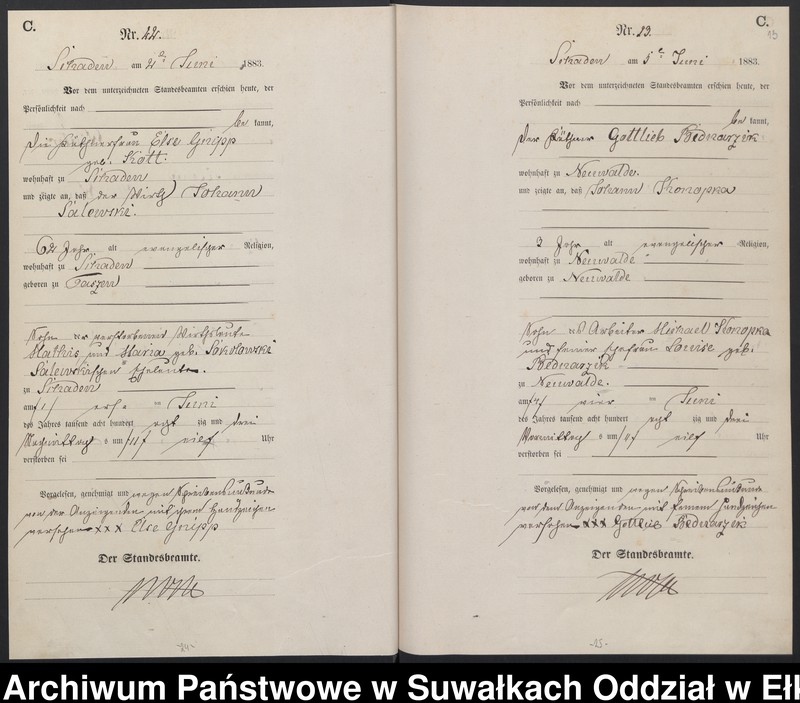 C.
Nr. 42.
am 2 Juni 1883.
Vor dem unterzeichneten Standesbeamten erschien heute, der
Persönlichkeit nach
be kannt,
Die Käthnerfrau Else Gripp
geb. Katt.
wohnhaft zu
und zeigte an, daß der Wirth Johann
Salewski.
62 Jahr alt evangelischer Religion,
wohnhaft zu
geboren zu
Sohn der verstorbenen Wirthsleute
Mathis und Maria geb. Sokolowski
Salewskischen Eheleute.
zu
am 1 ersten Juni
des Jahres tausend acht hundert acht zig und drei
Nachmittag s um 11 elf Uhr
verstorben sei
Vorgelesen, genehmigt und wegen Schreibensunkunde
von der Anzeigenden mit ihrem Handzeichen
versehen xxx Else Gripp
Der Standesbeamte.
24
C.
Nr. 19.
am 5 Juni 1883.
Vor dem unterzeichneten Standesbeamten erschien heute, der
Persönlichkeit nach
be kannt,
Der Käthner Gottlieb Bednarzik
wohnhaft zu Neuwalde.
und zeigte an, daß Johann Konopka
3 Jahr alt evangelischer Religion,
wohnhaft zu Neuwalde
geboren zu Neuwalde
Sohn des Arbeiter Michael Konopka
und seiner Ehefrau Louise geb.
Bednarzik
zu Neuwalde.
am 4 vier Juni
des Jahres tausend acht hundert acht zig und drei
Vormittag s um elf Uhr
verstorben sei
Vorgelesen, genehmigt und wegen Schreibensunkunde
von dem Anzeigenden mit seinem Handzeichen
versehen xxx Gottlieb Bednarzik
Der Standesbeamte.
25
Archiwum Państwowe w Suwałkach Oddział w Eł